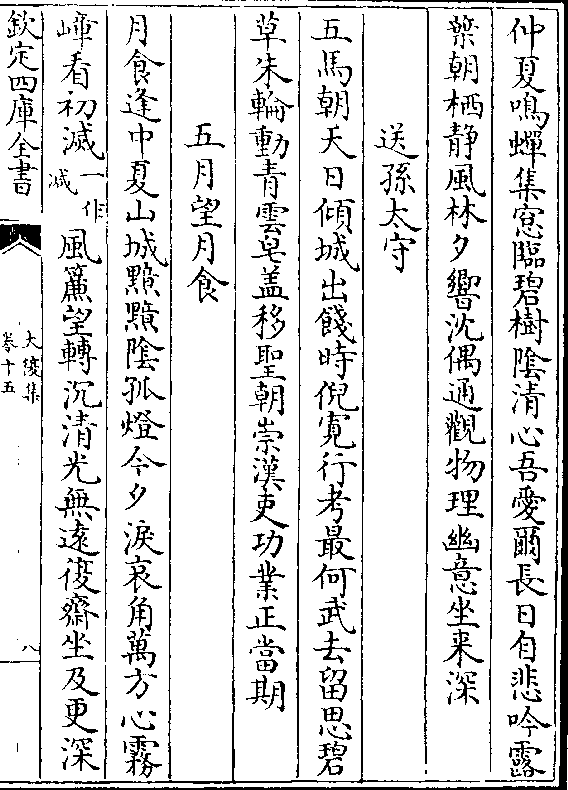 仲夏鳴蟬集窓臨碧樹陰清心吾愛爾長日自悲吟露
葉朝栖静風林夕響沈偶通觀物理幽意坐来深
送孫太守
五馬朝天日傾城出餞時倪寛行考最何武去留思碧
草朱輪動青雲皂盖移聖朝崇漢吏功業正當期
五月望月食
月食逢中夏山城黯黯陰孤燈今夕淚哀角萬方心霧
嶂看初滅一作減風簾望轉沉清光無遠復齋坐及更深
欽定四庫全書
大復集
卷十五
八